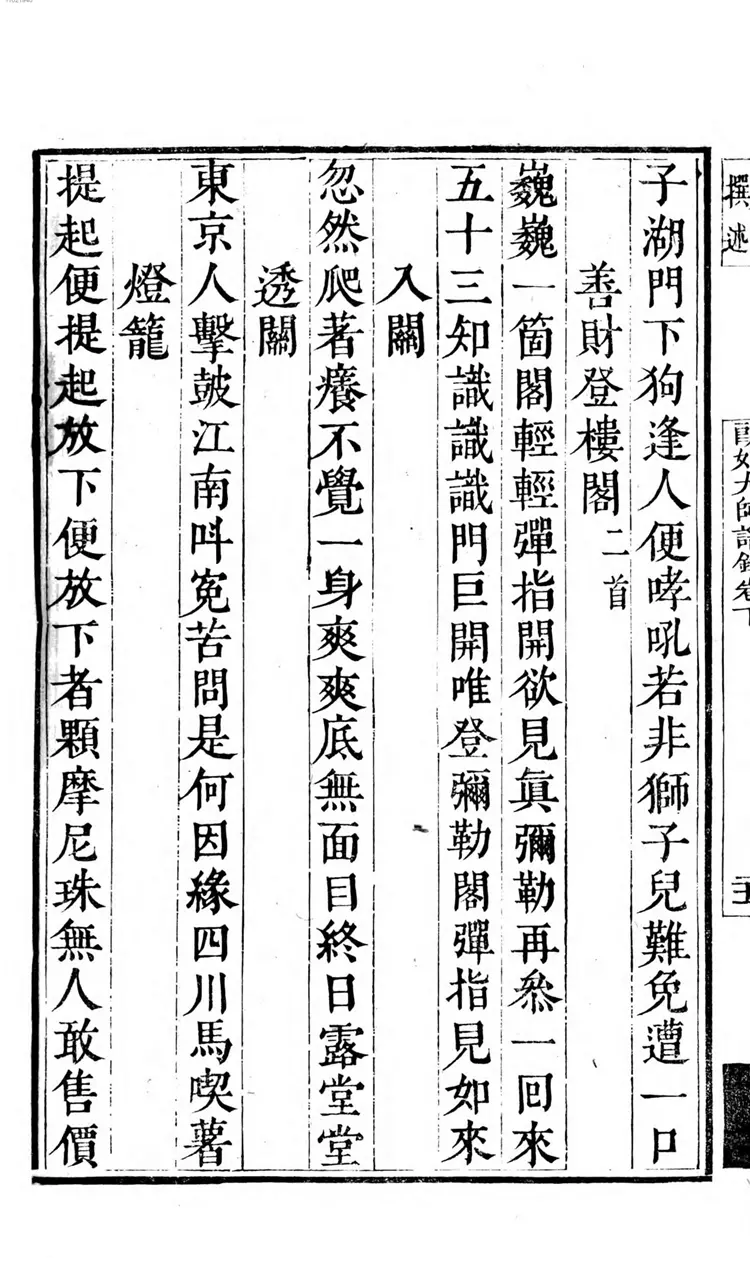 撰述
子湖門下狗逢人便哮吼若非獅子兒難免遭一口
善財登樓閣二首
巍巍一箇閣輕輕彈指開欲見眞彌勒再叅一回來
五十三知識識識門巨開唯登彌勒閣彈指見如來
入關
忽然爬著癢不覺一身爽爽底無面目終日露堂堂
透關
東京人擊皷江南呌寃苦問是何因緣四川馬喫薯
燈籠
提起便提起放下便放下者顆摩尼珠無人敢售價